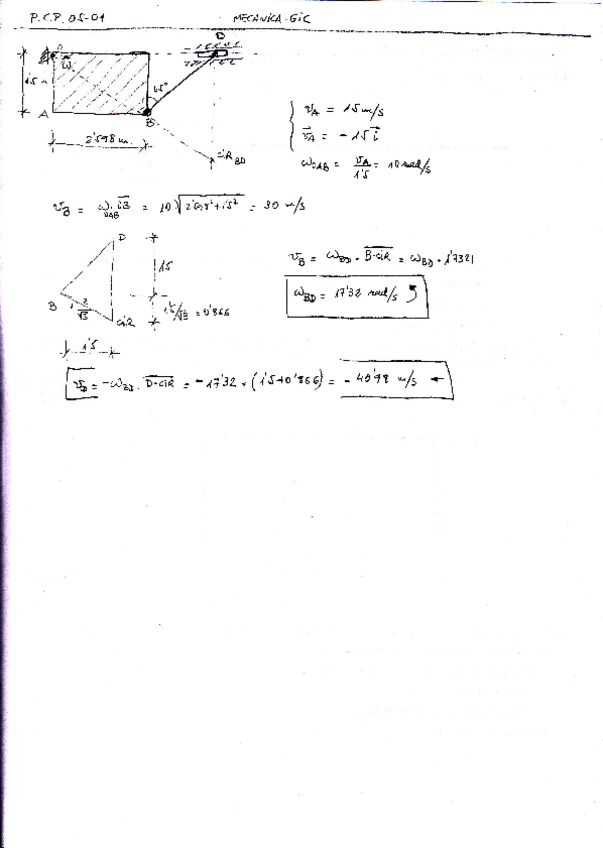 P.C.P. 05-01 MECANICA-GIC
D
O
ω
1'5 m
45°
A
B
2'598 m.
CIR BD
v_A = 15 m/s
v_A = - 15 i
ω_OAB = v_A / 1'5 = 10 rad/s
v_B = ω_OAB · iB = 10 √(2'598² + 1'5²) = 30 m/s
D
1'5
B
CIR
1'5/√3 = 0'866
1'5
v_B = ω_BD · B-CIR = ω_BD · 1'7321
ω_BD = 17'32 rad/s
v_D = -ω_BD · D-CIR = - 17'32 · (1'5+0'866) = - 40'98 m/s ←